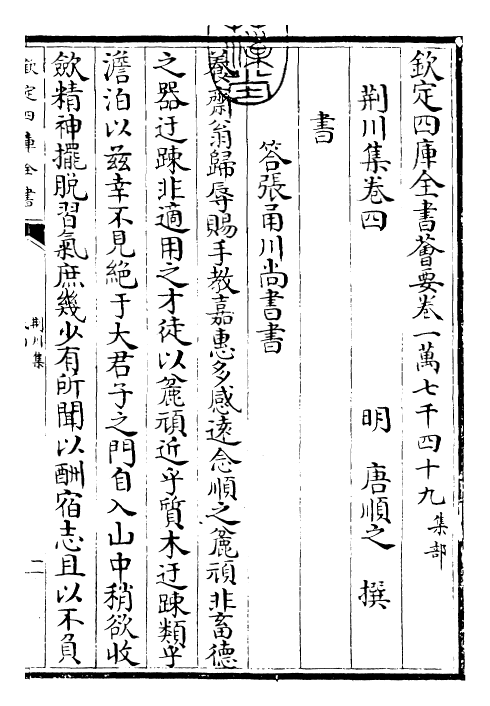 欽定四庫全書薈要卷一萬七千四十九集部
荆川集卷四
明 唐順之 撰
書
答張甬川尚書書
養齋翁歸辱賜手教嘉惠多感遠念順之麄頑非畜德
之器迂踈非適用之才徒以麄頑近乎質木迂踈類乎
澹泊以兹幸不見絶于大君子之門自入山中稍欲收
歛精神擺脱習氣庶幾少有所聞以酬宿志且以不負
欽定四庫全書
荆川集